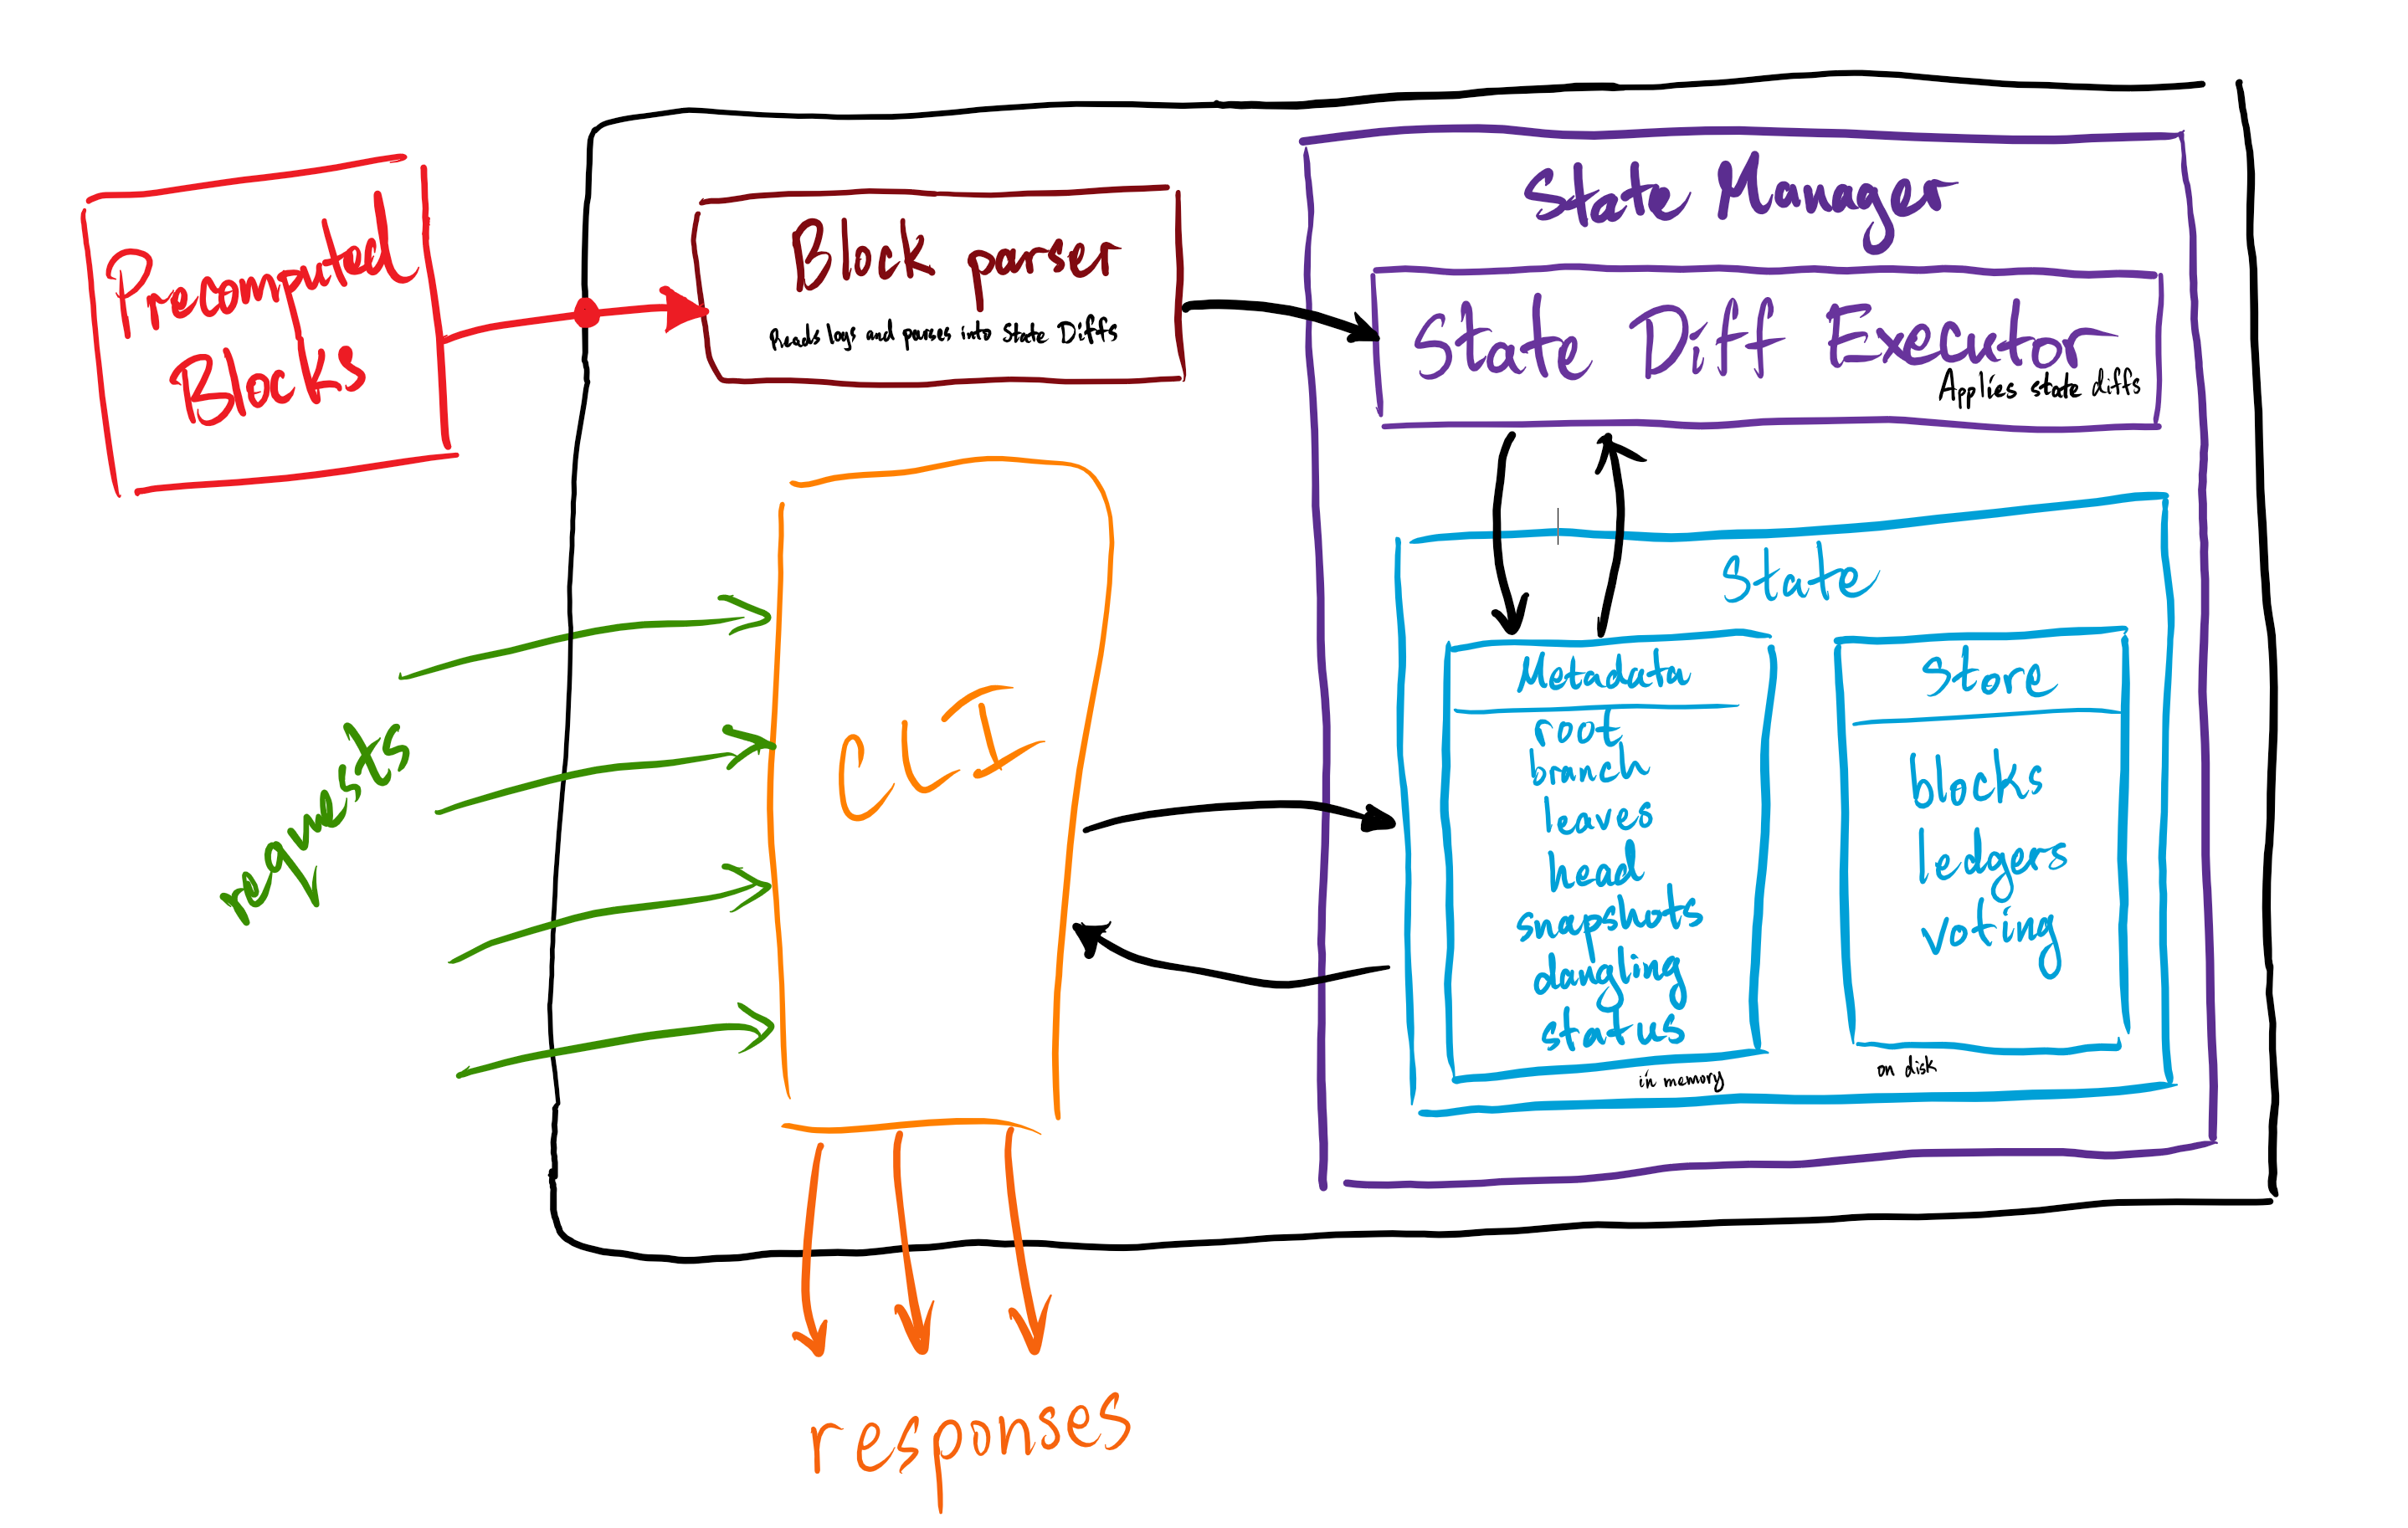 Precomputed
Blocks
Block parser
Reads logs and parses into State Diffs
State Manager
State Diff Executor
Applies state diffs
requests
CLI
responses
State
Metadata
root
branch
leaves
head
snapshots
dangling
status
in memory
Store
blocks
ledgers
voting
on disk